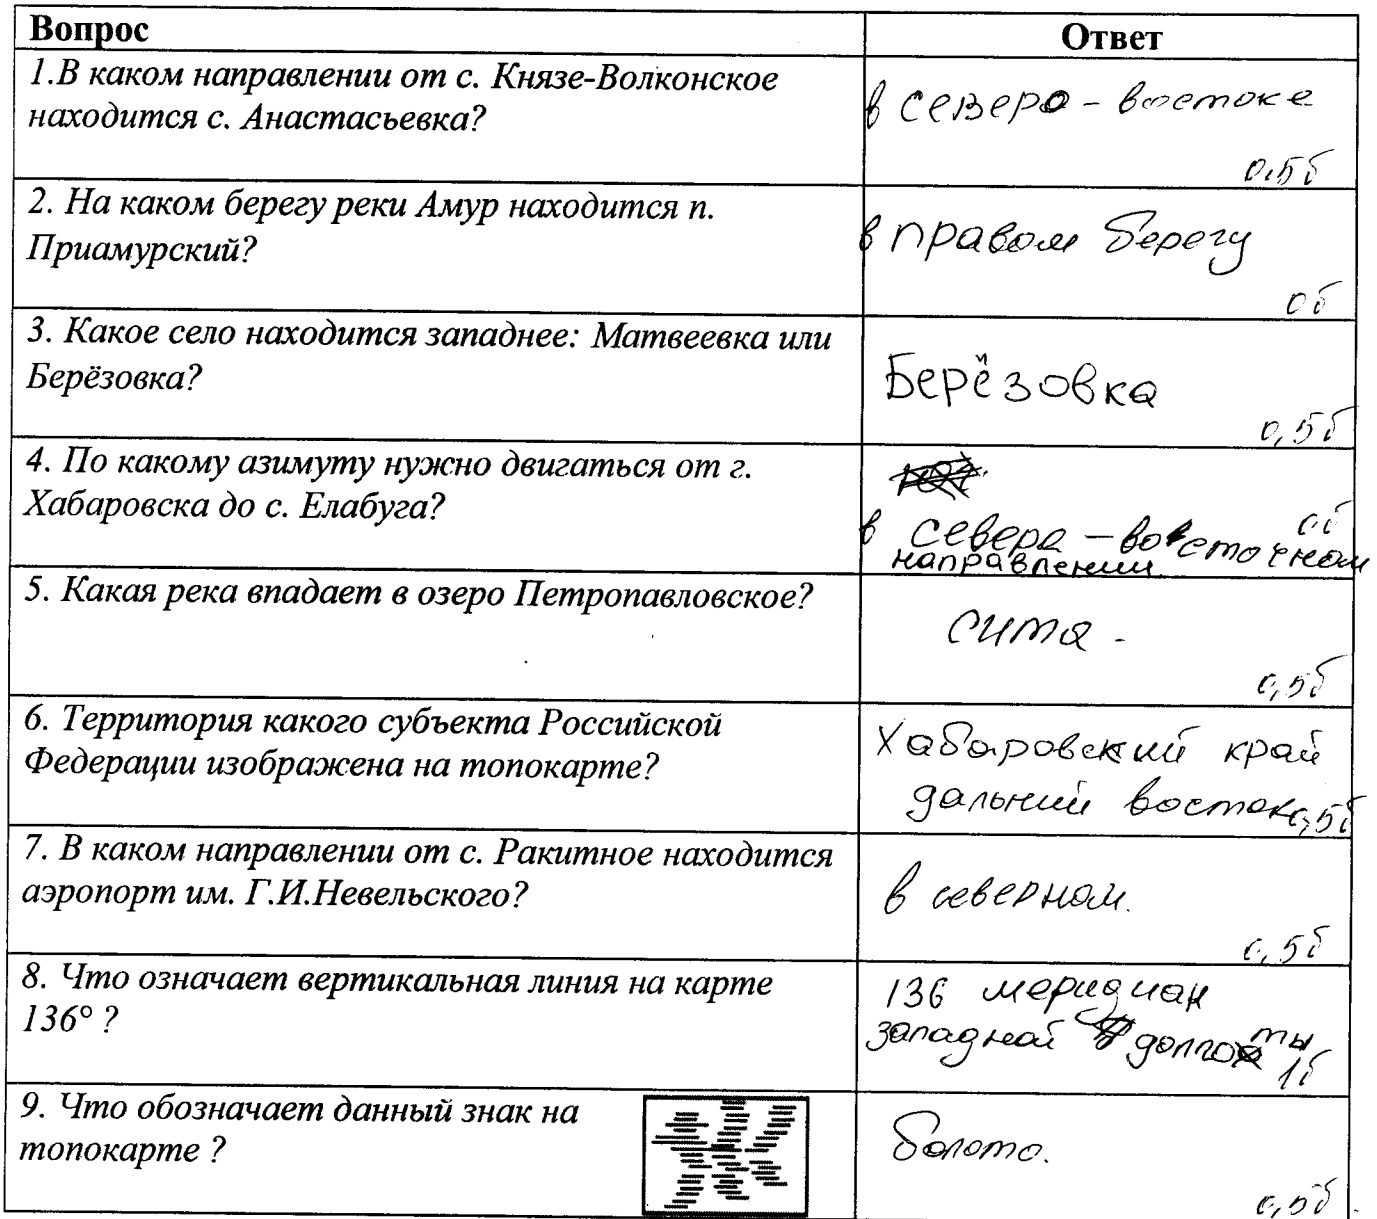 Вопрос
Ответ
1.В каком направлении от с. Князе-Волконское
находится с. Анастасьевка?
в северо - востоке
0,5б
2. На каком берегу реки Амур находится п.
Приамурский?
в правом берегу
0б
3. Какое село находится западнее: Матвеевка или
Берёзовка?
Берёзовка
0,5б
4. По какому азимуту нужно двигаться от г.
Хабаровска до с. Елабуга?
0б
в севера - восточном
направлении.
5. Какая река впадает в озеро Петропавловское?
сита -
0,5б
6. Территория какого субъекта Российской
Федерации изображена на топокарте?
Хабаровский край
дальний восток
0,5б
7. В каком направлении от с. Ракитное находится
аэропорт им. Г.И.Невельского?
в северном.
0,5б
8. Что означает вертикальная линия на карте
136° ?
136 меридиан
западной долготы
1б
9. Что обозначает данный знак на
топокарте ?
болото.
0,5б